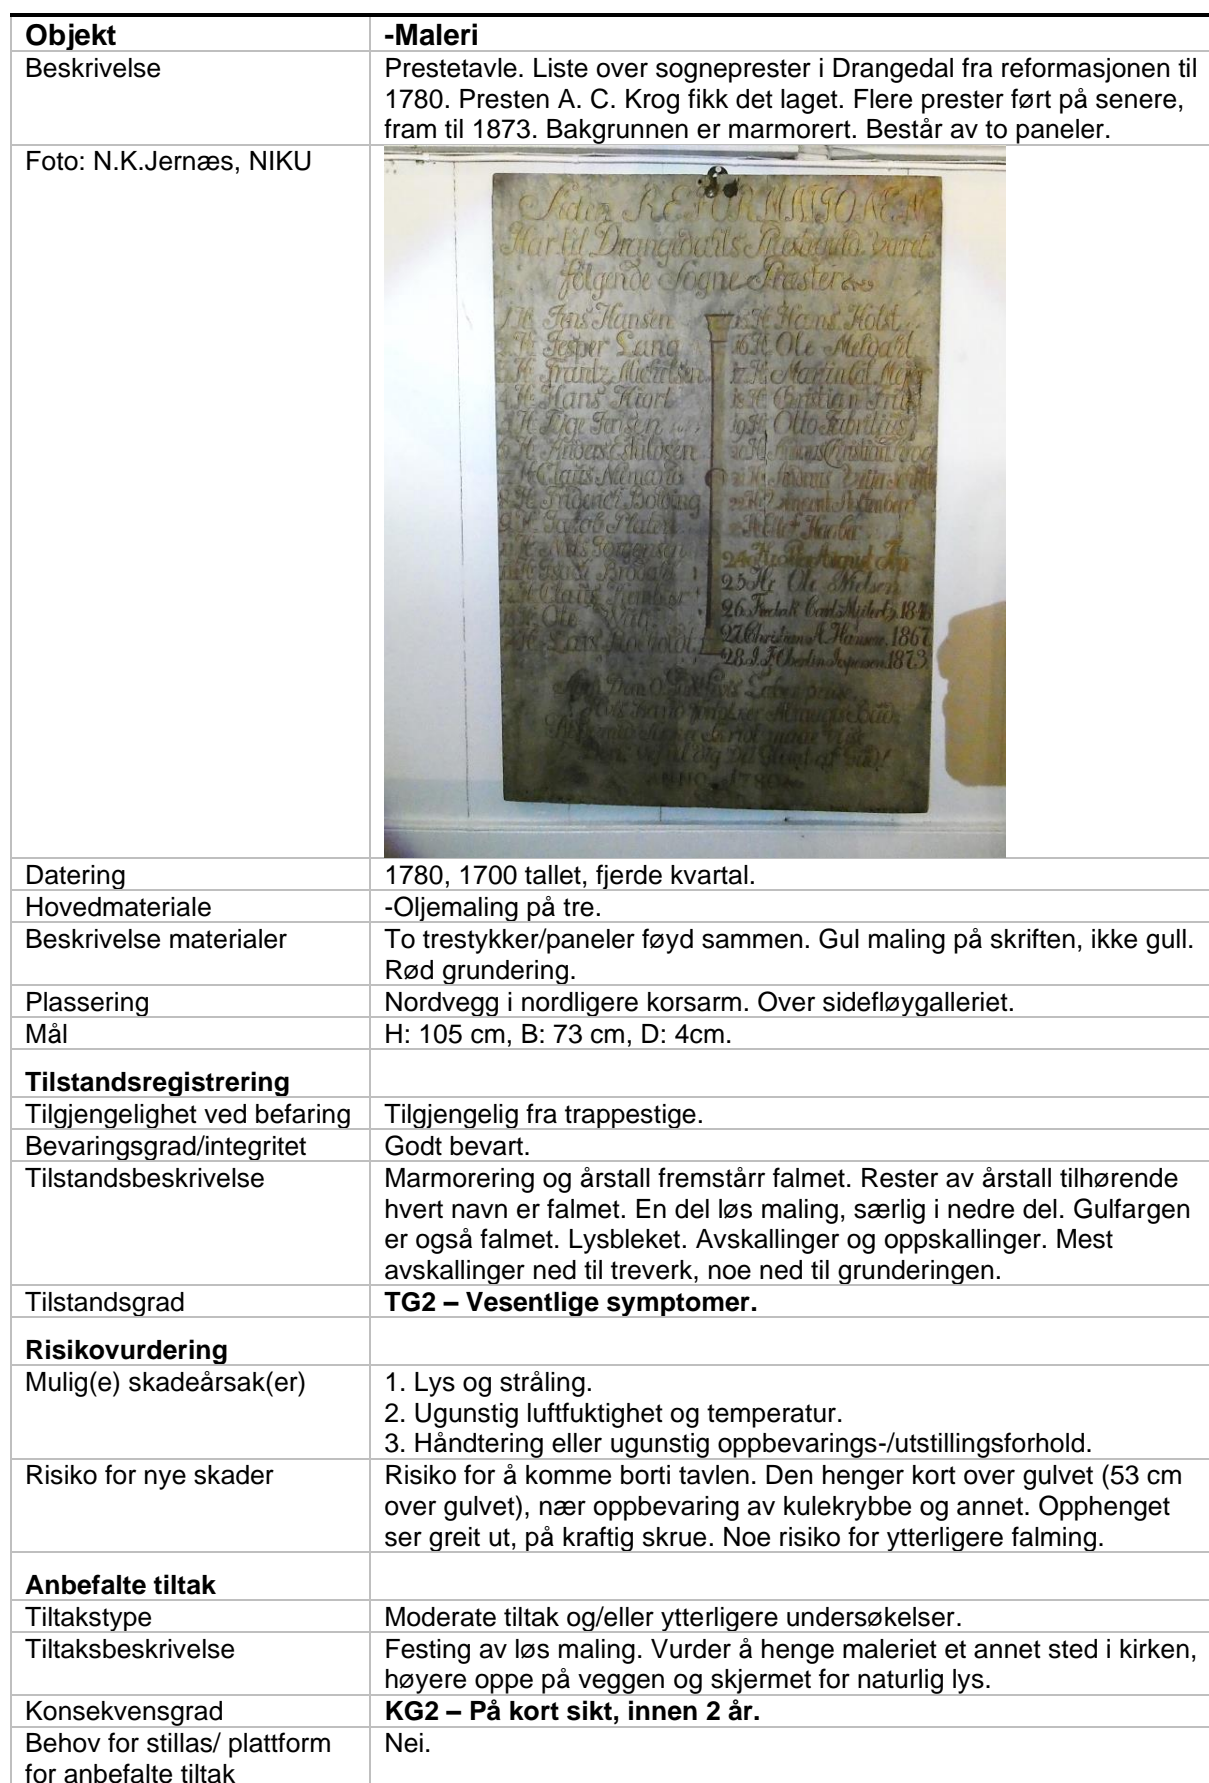 Objekt -Maleri
Beskrivelse Prestetavle. Liste over sogneprester i Drangedal fra reformasjonen til
1780. Presten A. C. Krog fikk det laget. Flere prester ført på senere,
fram til 1873. Bakgrunnen er marmorert. Består av to paneler.
Foto: N.K.Jernæs, NIKU
Siden REFORMATIONEN
Har til
følgende Sogne Præster
Jens Hansen
Jesper Lang
Frantz Michelsen
Hans Hiort
Claus
Ole
15 H Hans Holst
16 H Ole Meldahl
17 H
18 H Christian
19 H Otto Fabritius
24
25 Hr Ole Nielsen
26
27 Christian A. Hansen. 1867
28. J. F. Oberlin 1873
Datering 1780, 1700 tallet, fjerde kvartal.
Hovedmateriale -Oljemaling på tre.
Beskrivelse materialer To trestykker/paneler føyd sammen. Gul maling på skriften, ikke gull.
Rød grundering.
Plassering Nordvegg i nordligere korsarm. Over sidefløygalleriet.
Mål H: 105 cm, B: 73 cm, D: 4cm.
Tilstandsregistrering
Tilgjengelighet ved befaring Tilgjengelig fra trappestige.
Bevaringsgrad/integritet Godt bevart.
Tilstandsbeskrivelse Marmorering og årstall fremstårr falmet. Rester av årstall tilhørende
hvert navn er falmet. En del løs maling, særlig i nedre del. Gulfargen
er også falmet. Lysbleket. Avskallinger og oppskallinger. Mest
avskallinger ned til treverk, noe ned til grunderingen.
Tilstandsgrad TG2 – Vesentlige symptomer.
Risikovurdering
Mulig(e) skadeårsak(er) 1. Lys og stråling.
2. Ugunstig luftfuktighet og temperatur.
3. Håndtering eller ugunstig oppbevarings-/utstillingsforhold.
Risiko for nye skader Risiko for å komme borti tavlen. Den henger kort over gulvet (53 cm
over gulvet), nær oppbevaring av kulekrybbe og annet. Opphenget
ser greit ut, på kraftig skrue. Noe risiko for ytterligere falming.
Anbefalte tiltak
Tiltakstype Moderate tiltak og/eller ytterligere undersøkelser.
Tiltaksbeskrivelse Festing av løs maling. Vurder å henge maleriet et annet sted i kirken,
høyere oppe på veggen og skjermet for naturlig lys.
Konsekvensgrad KG2 – På kort sikt, innen 2 år.
Behov for stillas/ plattform Nei.
for anbefalte tiltak